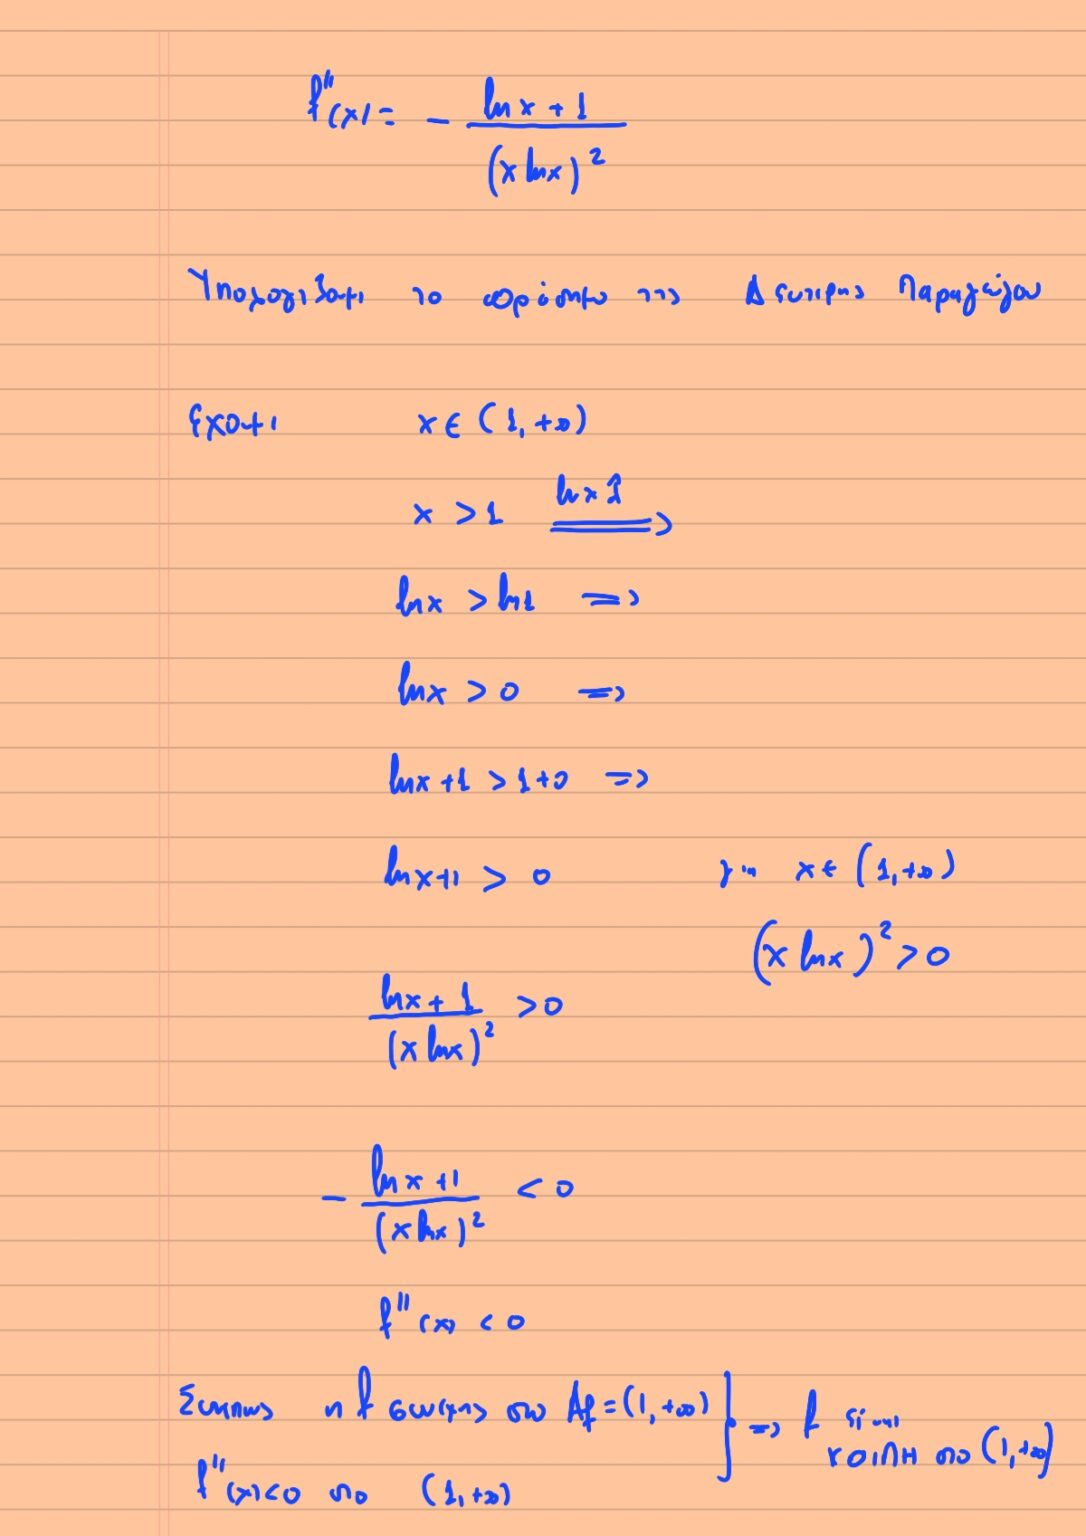 f''(x) = - (ln x + 1) / (x ln x)²
Υπολογίζουμε το πρόσημο της Δεύτερης Παραγώγου
έχουμε x ∈ (1, +∞)
x > 1 ln x ↑ ⟹
ln x > ln 1 ⟹
ln x > 0 ⟹
ln x + 1 > 1 + 0 ⟹
ln x + 1 > 0 για x ∈ (1, +∞)
(x ln x)² > 0
(ln x + 1) / (x ln x)² > 0
- (ln x + 1) / (x ln x)² < 0
f''(x) < 0
Συνεπώς η f συνεχής στο Af = (1, +∞) } ⟹ f είναι
f''(x) < 0 στο (1, +∞) κοίλη στο (1, +∞)